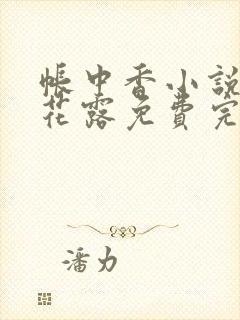 帳中香小說
花露免費完
潘力